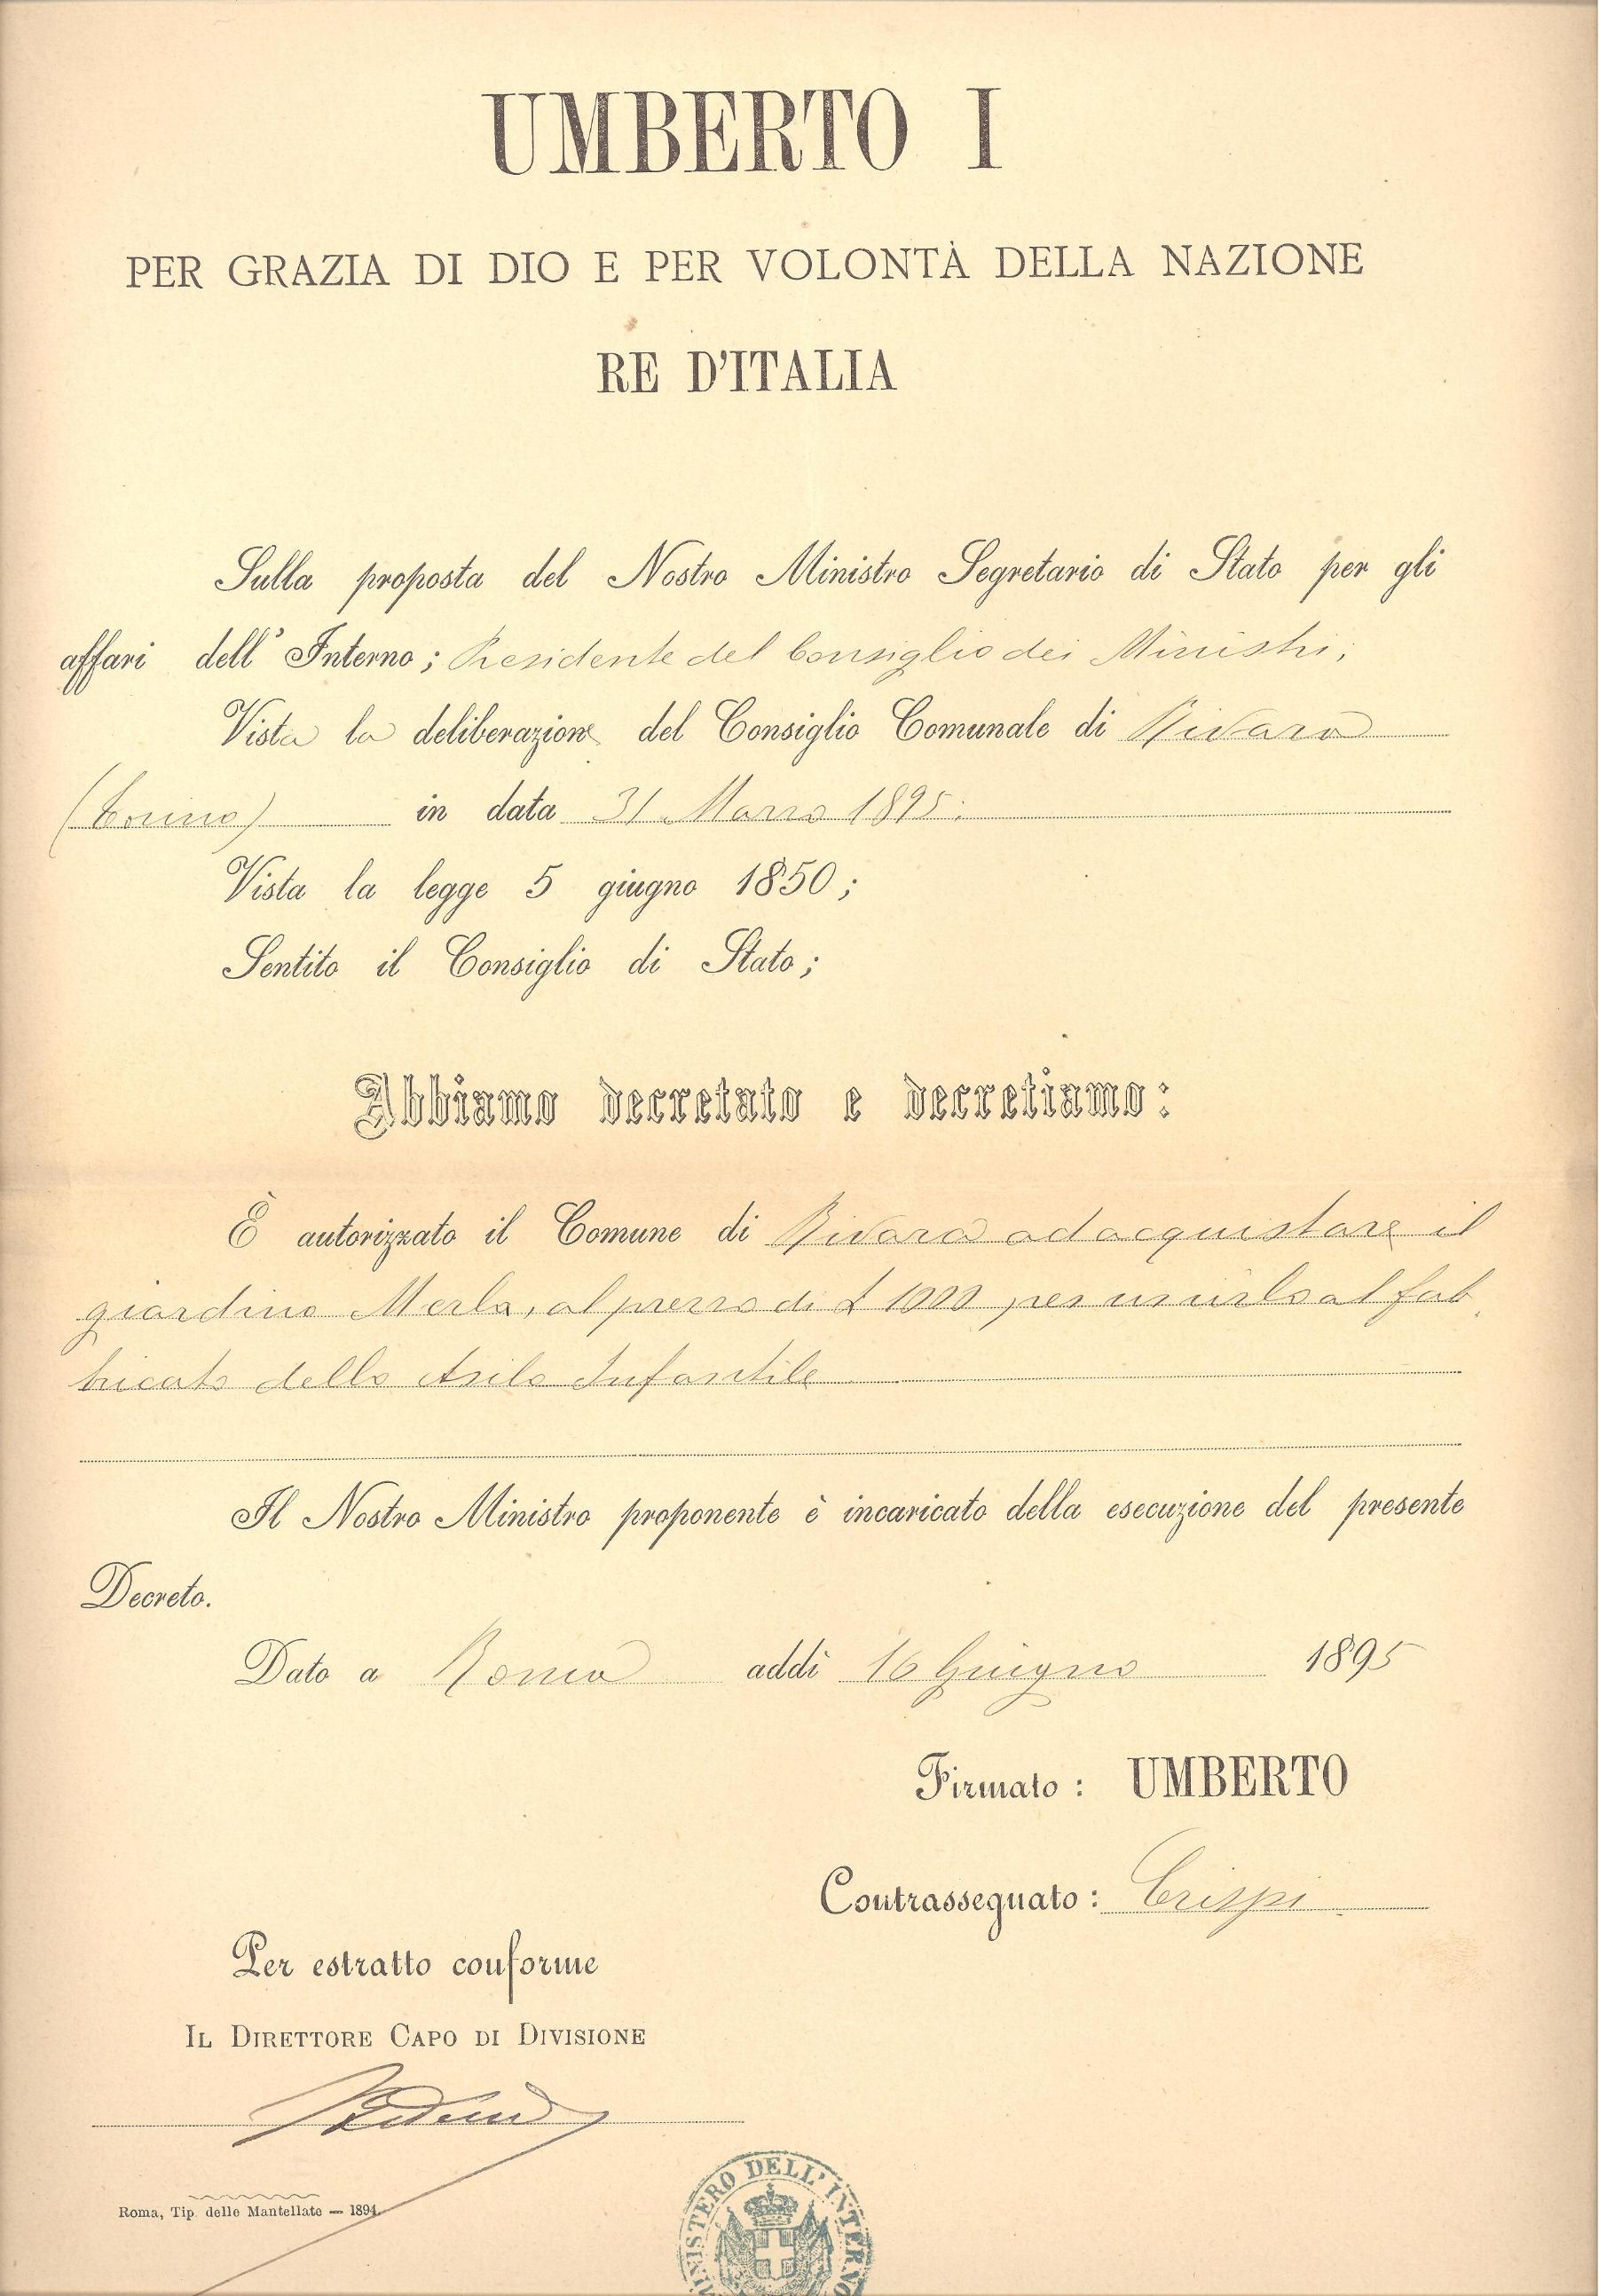 UMBERTO I
PER GRAZIA DI DIO E PER VOLONTÀ DELLA NAZIONE
RE D'ITALIA
Sulla proposta del Nostro Ministro Segretario di Stato per gli
affari dell'Interno; Presidente del Consiglio dei Ministri;
Vista la deliberazione del Consiglio Comunale di Rivara
(Torino) in data 31 Marzo 1895;
Vista la legge 5 giugno 1850;
Sentito il Consiglio di Stato;
Abbiamo decretato e decretiamo:
È autorizzato il Comune di Rivara ad acquistare il
giardino Merlo, al prezzo di £ 1000 per unirlo al fab
bricato dello Asilo Infantile
Il Nostro Ministro proponente è incaricato della esecuzione del presente
Decreto.
Dato a Roma addì 16 Giugno 1895
Firmato: UMBERTO
Contrassegnato: Crispi
Per estratto conforme
IL DIRETTORE CAPO DI DIVISIONE
Roma, Tip. delle Mantellate — 1894.
MINISTERO DELL'INTERNO